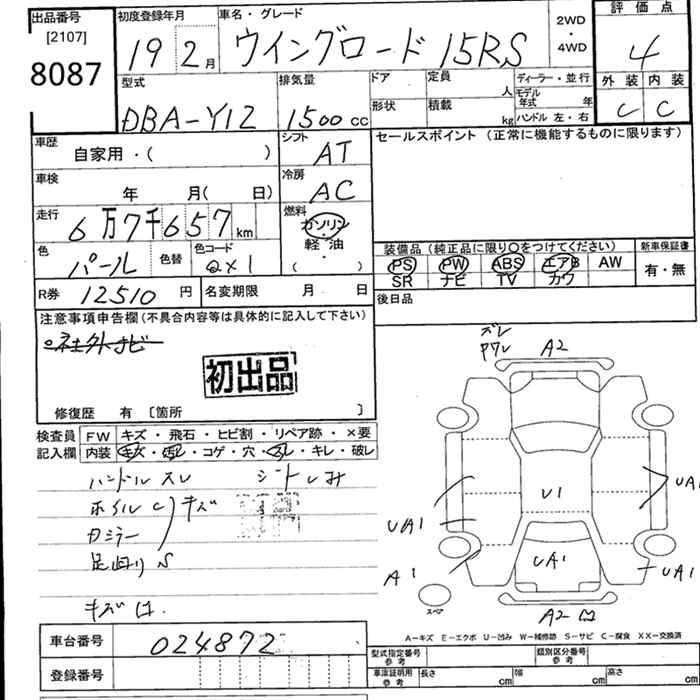 出品番号
[2107]
8087
初度登録年月
19 2月
車名・グレード
ウイングロード 15RS
2WD
・
4WD
評価点
4
外装 内装
C C
型式
DBA-Y12
排気量
1500 cc
ドア
形状
定員 人
積載 kg
ディーラー・並行
モデル年式 年
ハンドル 左・右
車歴
自家用・( )
シフト
AT
セールスポイント (正常に機能するものに限ります)
車検
年 月( 日)
冷房
AC
走行
6万7千657km
燃料
ガソリン
・
軽油
・
( )
色
パール
色替
色コード
QX1
装備品 (純正品に限り○をつけてください)
新車保証書
PS PW ABS エアB AW
有・無
SR ナビ TV カワ
R券 12510円
名変期限 月 日
後日品
注意事項申告欄(不具合内容等は具体的に記入して下さい)
社外ナビ
初出品
修復歴 有 〔箇所 〕
検査員
記入欄
FW キズ・飛石・ヒビ割・リペア跡・×要
内装 キズ・汚レ・コゲ・穴・スレ・キレ・破レ
ハンドルスレ シートしみ
ホイルC キズ
カミラー
足廻りS
キズ
ズレ
ワレ
A2
UA1
U1
UA1
UA1
A1
UA1
スペア
A2
A-キズ E-エクボ U-凹み W-補修跡 S-サビ C-腐食 XX-交換済
車台番号
024872
登録番号
型式指定番号
参考
類別区分番号
参考
車庫証明用
参考
長さ cm
幅 cm
高さ cm